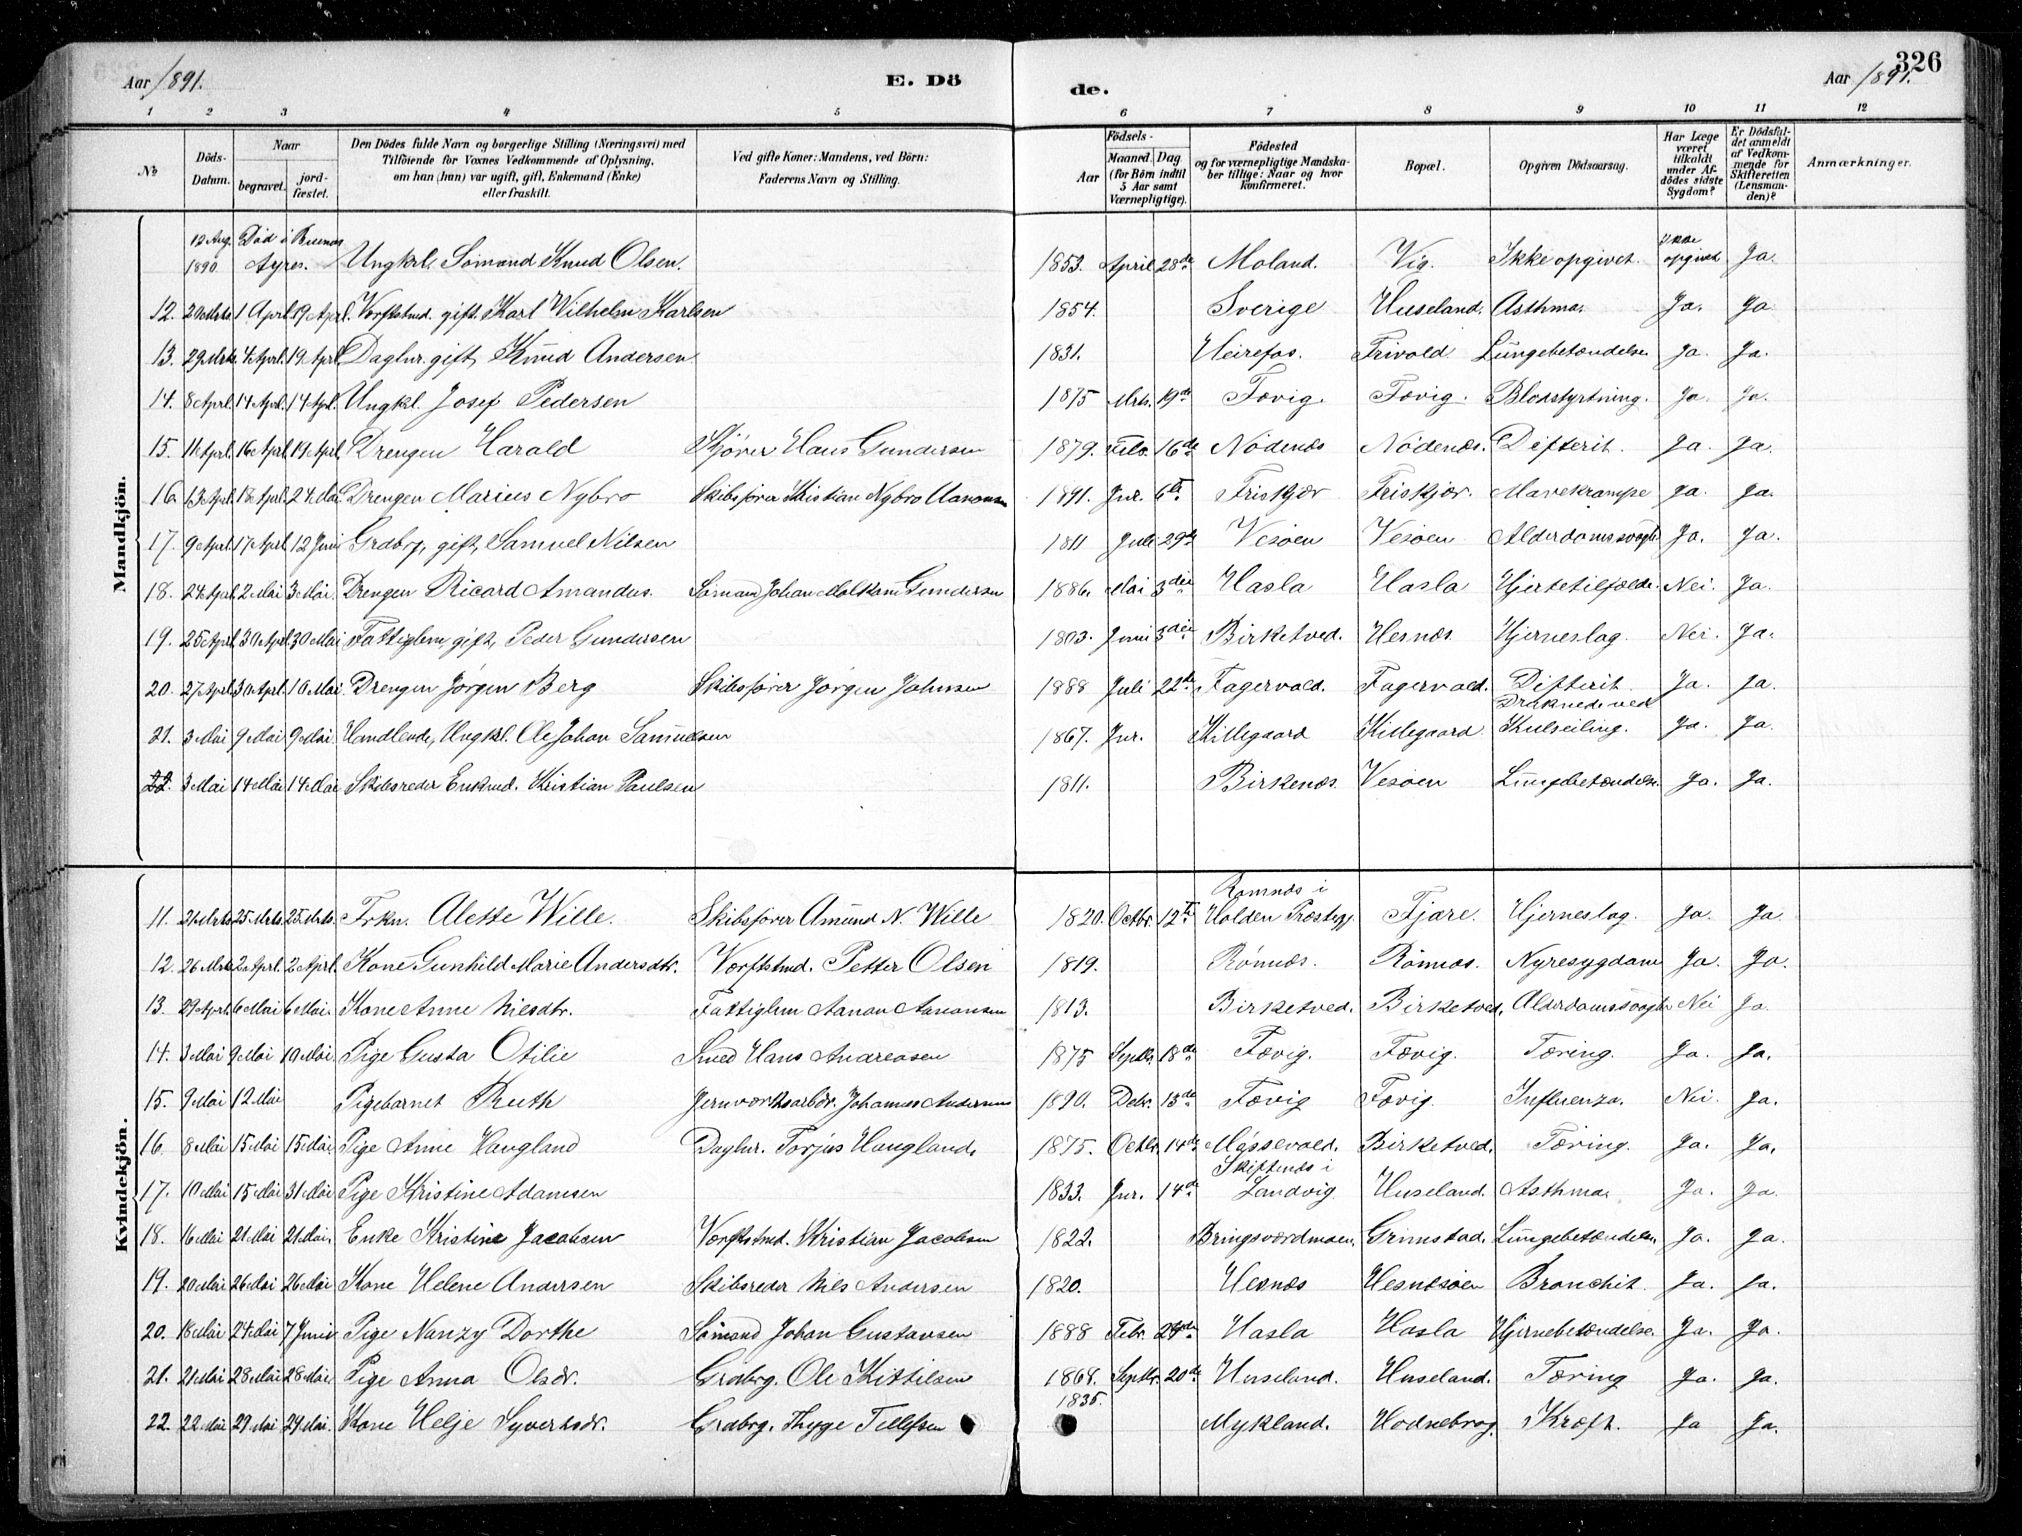 326
Aar 1891. E. Dö de. Aar 1891.
1 2 3 4 5 6 7 8 9 10 11 12
No Döds-Datum. Naar begravet. jordfæstet. Den Dödes fulde Navn og borgerlige Stilling (Næringsvei) med Tilföiende for Voxnes Vedkommende af Oplysning, om han (hun) var ugift, gift, Enkemand (Enke) eller fraskilt. Ved gifte Koner: Mandens, ved Börn: Faderens Navn og Stilling. Födsels- Aar Maaned. Dag (for Börn indtil 5 Aar samt Værnepligtige). Födested og for værnepligtige Mandskaber tillige: Naar og hvor konfirmeret. Bopæl. Opgiven Dödsaarsag. Har Læge været tilkaldt under Afdödes sidste Sygdom? Er Dödsfaldet anmeldt af Vedkommende for Skifteretten (Lensmanden)? Anmærkninger.
Mandkjön.
12 Aug. 1890 Död i Buenos Ayres. Ungkrl. Sömand Knud Olsen. 1853. April 28de Moland. Vig. Ikke opgivet. Ikke opgivet Ja.
12. 29 Mrts 1 Aprl. 19 Aprl. Værftstmd. gift. Karl Wilhelm Karlsen 1854. Sverige Huseland. Asthma. Ja. Ja
13. 29 Mrts 4 Aprl. 19 Aprl. Daglnr. gift, Knud Andersen 1831. Heirefos. Frivold Lungebetændelse Ja. Ja.
14. 8 Aprl. 14 Aprl. 14 Aprl. Ungkl. Josef Pedersen 1875 Mrts. 19de Fævig. Fævig. Blodstyrtning. Ja. Ja.
15. 11 Aprl. 16 Aprl. 19 Aprl. Drengen Harald Skjører Hans Gundersen 1879. Feb. 16de Nödenæs Nödenæs. Difterit. Ja. Ja.
16. 13 Aprl. 18 Aprl. 24 Mai Drengen Marius Nybro Skibsfører Kristian Nybro Aanonsen 1891. Jnr. 6te Friskjær Friskjær. Mavekrampe Ja. Ja.
17. 9 Aprl. 17 Aprl. 12 Juni Grdbrg, gift, Samuel Nilsen 1811 Juli 29de Vesøen Vesøen Alderdomssvagh. Ja. Ja.
18. 24 Aprl. 2 Mai 3 Mai. Drengen Ricard Amandus. Sömand Johan Malkom Gundersen 1886. Mai 3die Hasla Hasla Hjertetilfælde. Nei. Ja.
19. 25 Aprl. 30 Aprl. 30 Mai Fattiglm, gift, Peder Gundersen 1803. Juni 3die Birketved. Hesnæs. Hjerneslag. Nei. Ja.
20. 27 Aprl. 30 Aprl. 10 Mai. Drengen Jørgen Berg Skibsfører Jørgen Johnsen 1888 Juli 22de Fagervold. Fagervold. Difterit. Ja. Ja.
21. 3 Mai 9 Mai 9 Mai. Handlende, Ungkl. Ole Johan Samuelsen 1867. Jnr. Killegaard Killegaard Druknede ved Kulseiling. Ja. Ja.
22. 3 Mai 14 Mai 14 Mai Skibsreder Enkmd. Kristian Paulsen 1811. Birkenæs. Vesøen Lungebetændelse. Ja. Ja.
Kvindekjön.
11. 21 Mrts 25 Mrts. 25 Mrts. Frkn. Alette Wille. Skibsfører Amund N. Wille 1820. Octbr. 12te Romnæs i Holden Præstegj. Fjære. Hjerneslag. Ja. Ja.
12. 26 Mrts 2 Aprl. 2 Aprl. Kone Gunhild Marie Andersdtr. Værftstmd. Petter Olsen 1819. Rönnæs. Rönnæs. Nyresygdom Ja. Ja.
13. 29 Aprl. 6 Mai 6 Mai. Kone Anne Nilsdtr. Fattiglm Aanon Aanonsen 1813. Birketved. Birketved. Alderdomssvagh. Nei Ja.
14. 3 Mai 9 Mai 10 Mai. Pige Gusta Otilie Smed Hans Andreasen 1875 Septbr. 18de Fævig. Fævig. Tæring. Ja. Ja.
15. 9 Mai 12 Mai Pigebarnet Ruth Jernværksarbdr. Johannes Andersen 1890. Debr. 15de Fævig Fævig. Influenza. Nei. Ja.
16. 8 Mai 15 Mai 15 Mai. Pige Anne Haugland Daglnr. Torjus Haugland. 1875. Octbr. 14de Mössevold. Birketved. Tæring. Ja. Ja.
17. 10 Mai 15 Mai 31 Mai Pige Kristine Adamsen 1833. Jnr. 14de Skiftenæs i Landvig. Huseland. Asthma. Ja. Ja.
18. 16 Mai 21 Mai 21 Mai. Enke Kristine Jacobsen Værftstmd. Kristian Jacobsen 1822. Bringsværdmoen. Grimstad. Lungebetændelse Ja. Ja.
19. 20 Mai 26 Mai 26 Mai Kone Helene Andersen Skibsreder Nils Andersen 1820. Hesnæs Hesnæsøen Bronchit. Ja. Ja.
20. 18 Mai 24 Mai 7 Juni Pige Nanzy Dorthe Sömand Johan Gustavsen 1888 Febr. 29de Hasla Hasla Hjernebetændelse. Ja. Ja.
21. 21 Mai 28 Mai 28 Mai Pige Anna Olsdr. Grdbrg. Ole Kittilsen 1868. Septbr. 20de Huseland. Huseland. Tæring Ja. Ja.
22. 22 Mai 29 Mai 29 Mai. Kone Helje Syvertsdr. Grdbrg. Thygge Tellefsen 1835. Mykland. Hodnebrog. Kræft. Ja Ja.